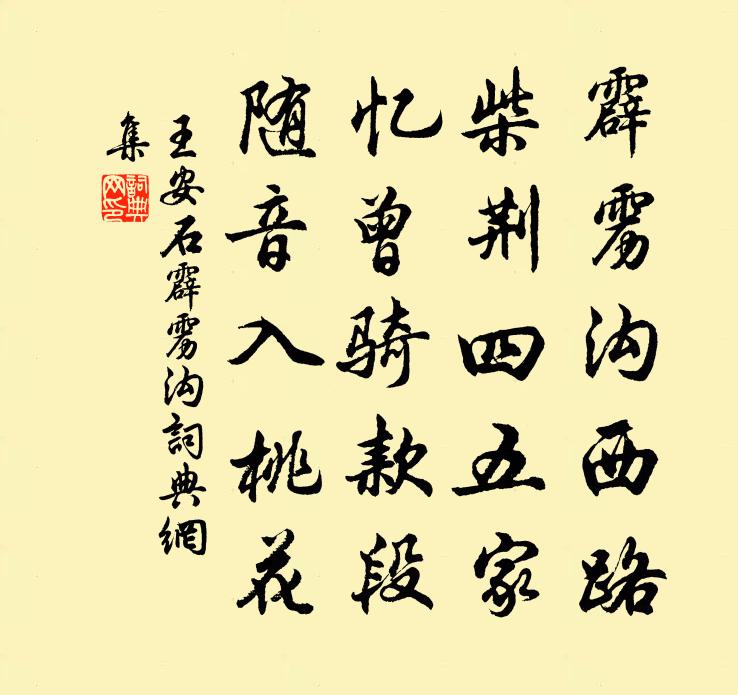 霹雳沟西路
柴荆四五家
忆曾骑款段
随音入桃花
王安石霹雳沟詞典網
集
詞典
网印